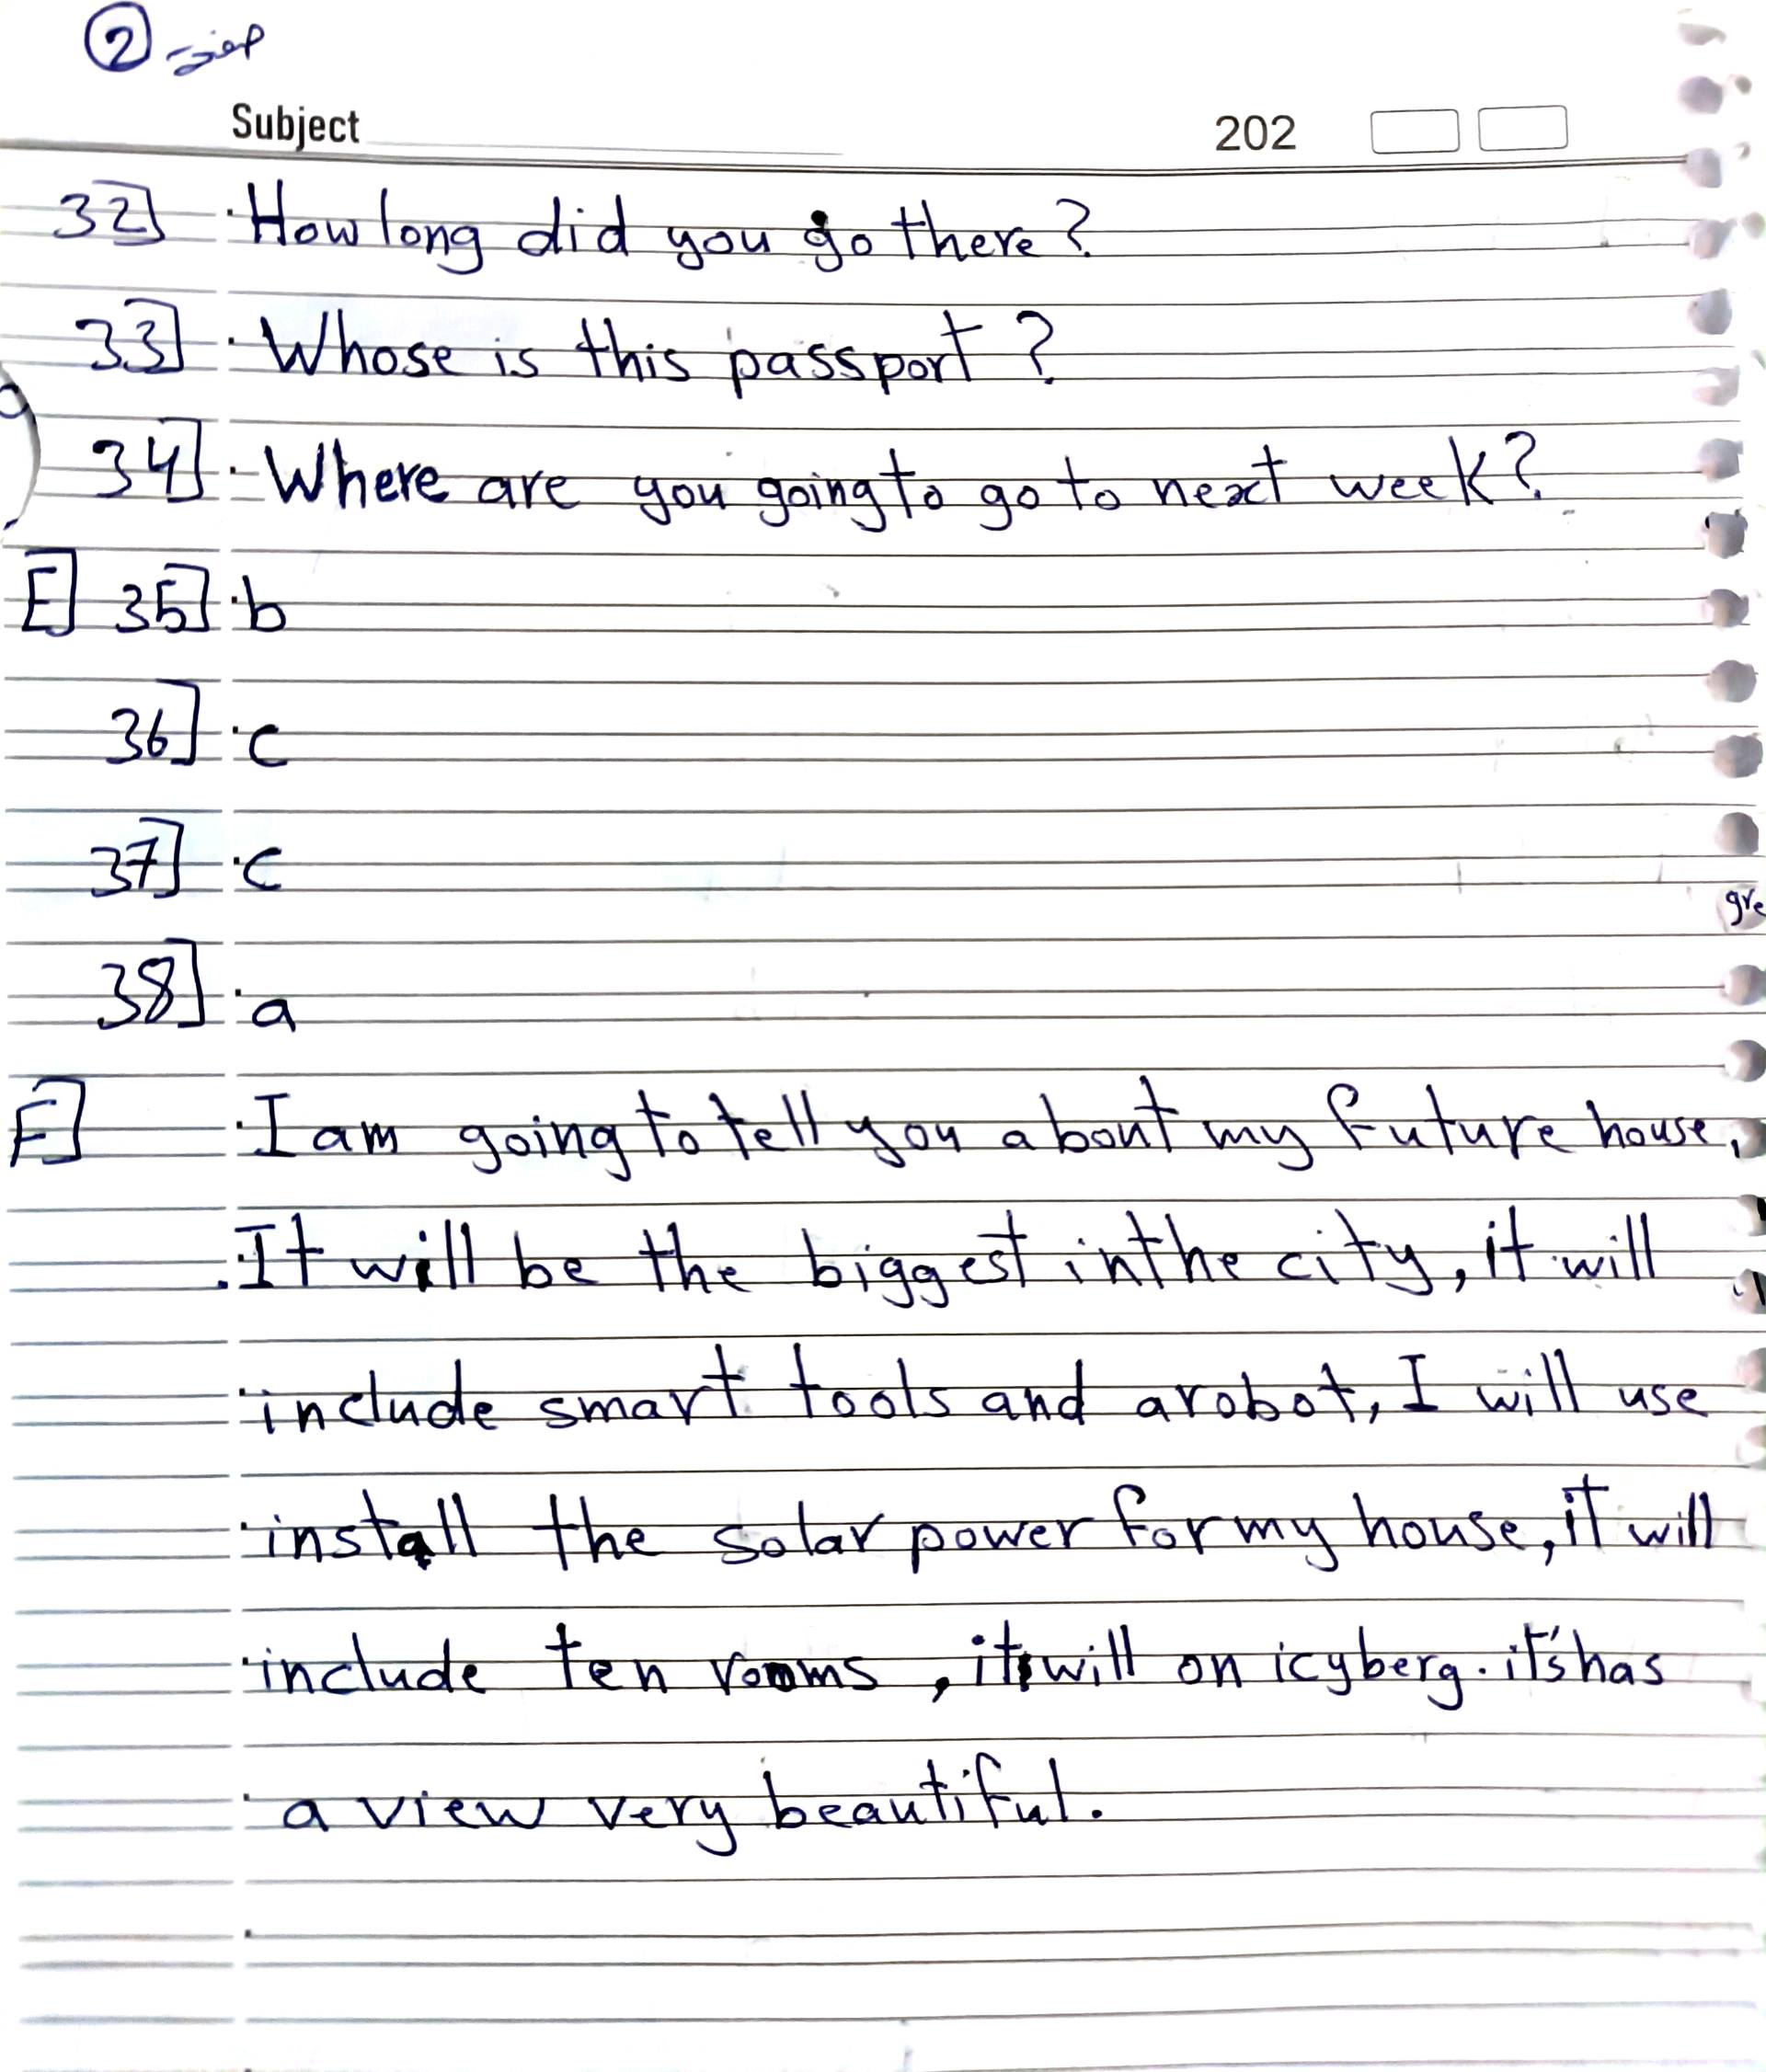 ②
Subject 202
32] How long did you go there?
33] Whose is this passport?
34] Where are you going to go to next week?
E] 35] b
36] c
37] c
gre
38] a
F] I am going to tell you about my future house,
It will be the biggest in the city, it will
include smart tools and a robot, I will use
install the solar power for my house, it will
include ten rooms, it will on icyberg. it's has
a view very beautiful.